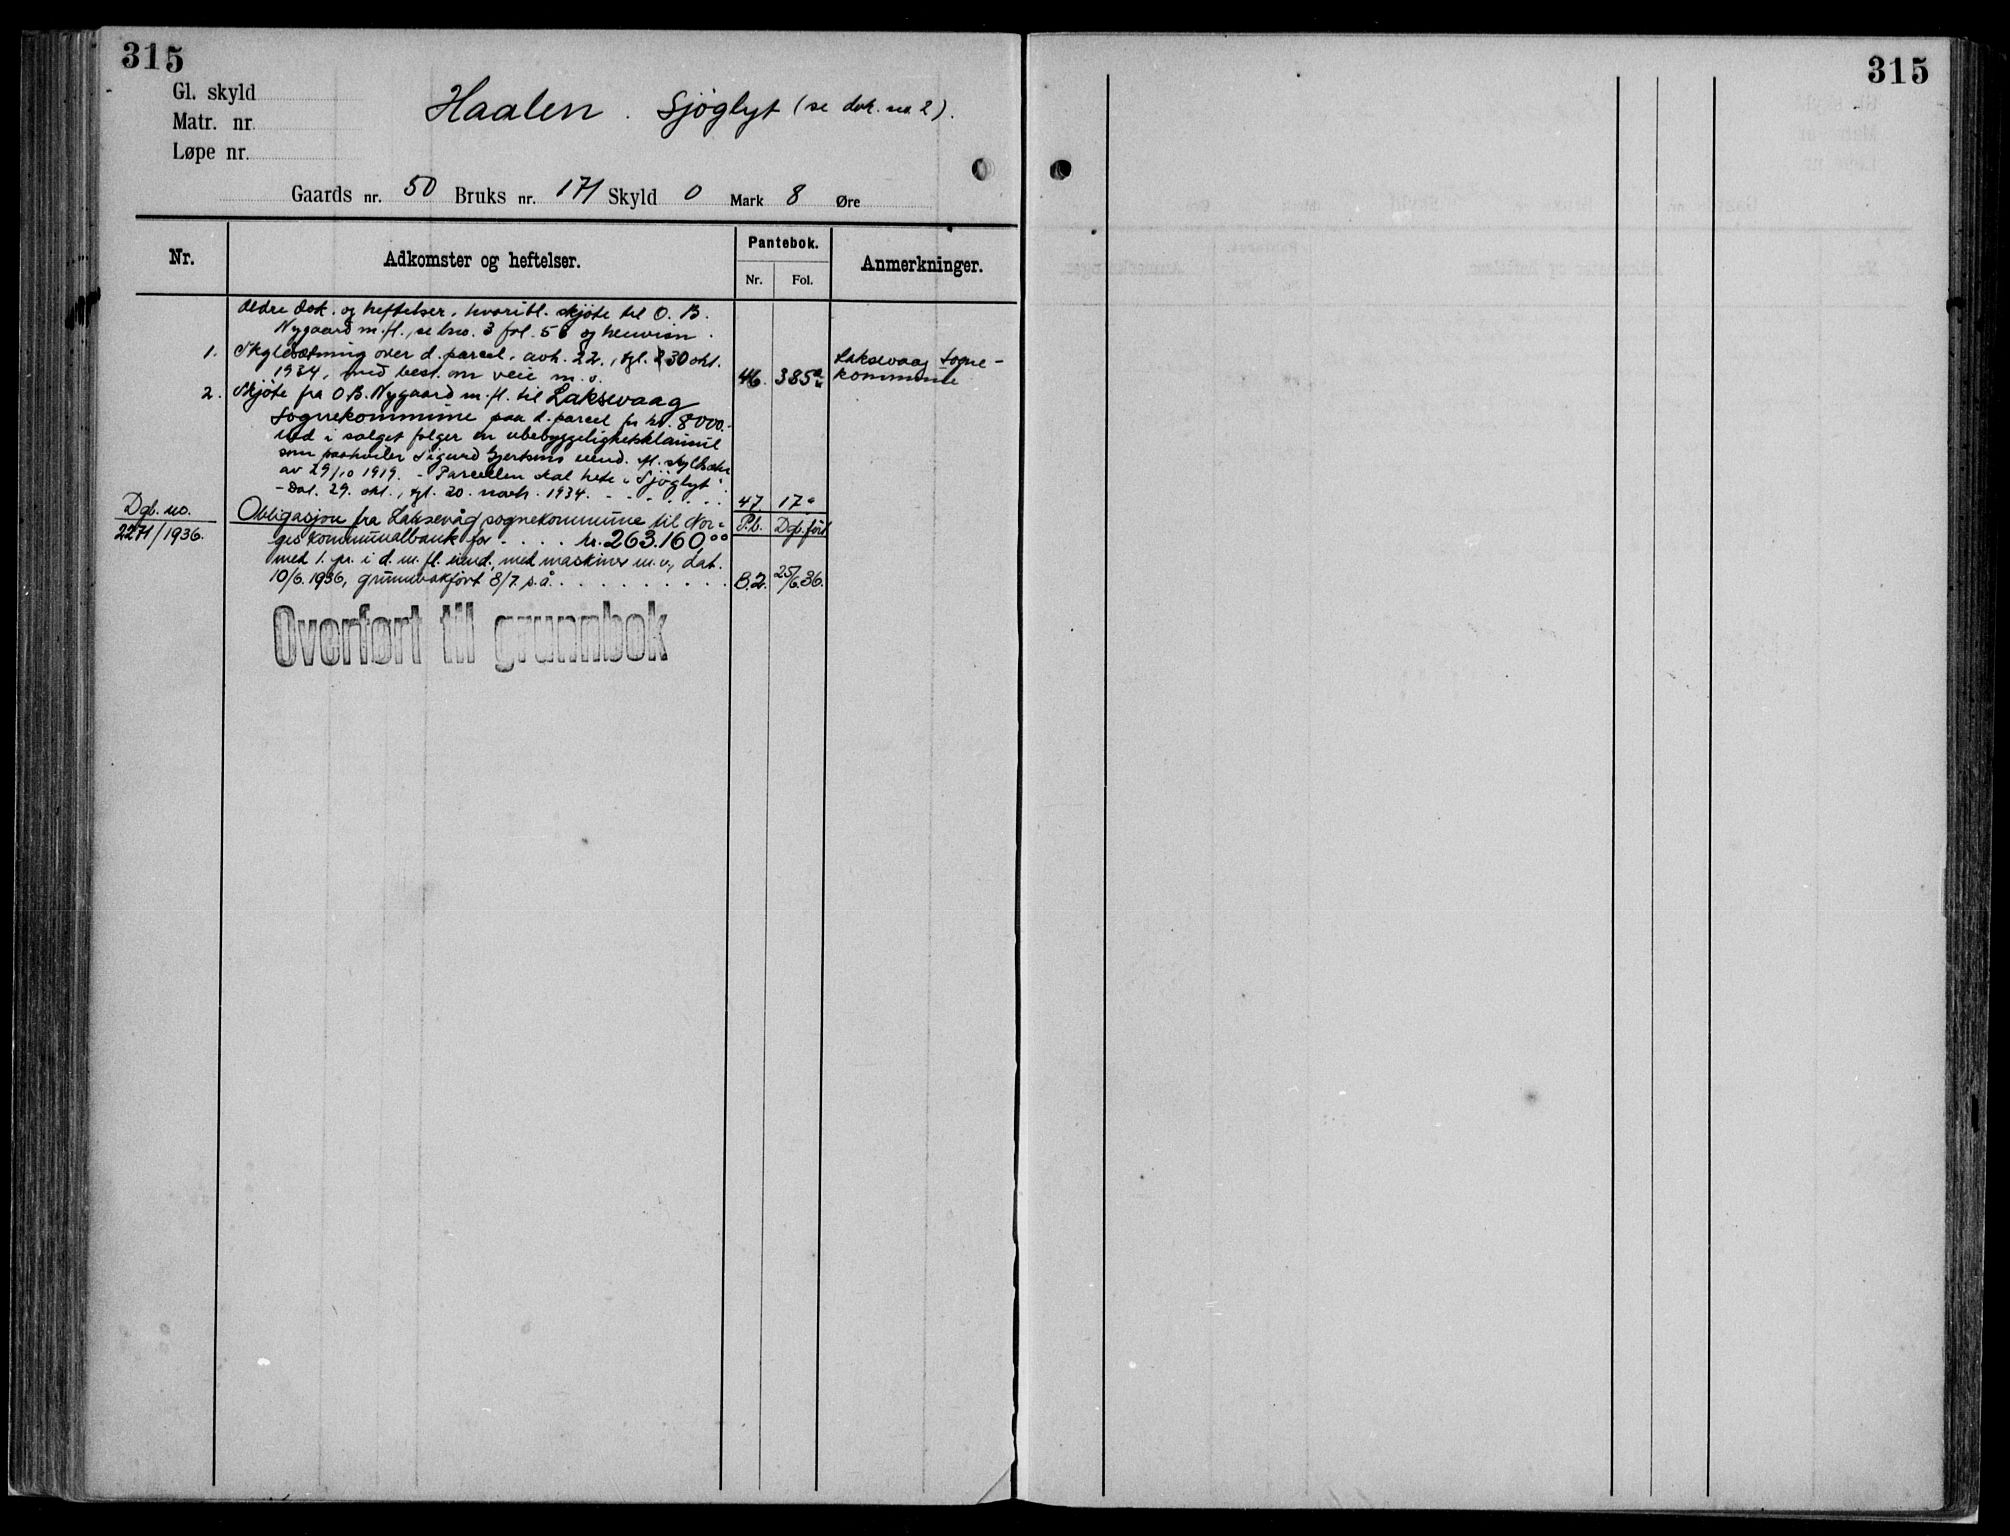 315
315
Gl. skyld
Matr. nr.
Løpe nr.
Haalen. Sjøglyt (se dok. no. 2).
Gaards nr. 50 Bruks nr. 171 Skyld 0 Mark 8 Øre
Nr. Adkomster og heftelser. Pantebok. Anmerkninger.
Nr. Fol.
Ældre dok. og heftelser, hvoribl. skjøte til O. B.
Nygaard m. fl., se bno. 3 fol. 56 og henvisn.
1. Skyldsætning over d. parcel, avh. 22., tgl. 30 okt. Laksevaag sogne-
1934, med best. om veie m. v. 46. 385 kommune
2. Skjøte fra O.B. Nygaard m. fl. til Laksevaag
Sognekommune paa d. parcel for kr. 8000.-
Ved i salget følger en ubebyggelighetsklausul
som paahviler Sigurd Gjertsens eiend. ifl.
av 29/10 1919. - Parcellen skal hete "Sjøglyt".
- Dat. 29. okt., tgl. 20. novb. 1934. - - - - - 47 17
Dgb. no. Obligasjon fra Laksevåg sognekommune til Nor- P.b. Dgb. ført
2271/1936. ges kommunalbank for - . . . kr. 263.160.00
med 1. pr. i d. m. fl. eiend. med maskiner m. v., dat.
10/6. 1936, grunnbokført 8/7. s. å. . . . . . . . . B.2. 25/6.36.
Overført til grunnbok